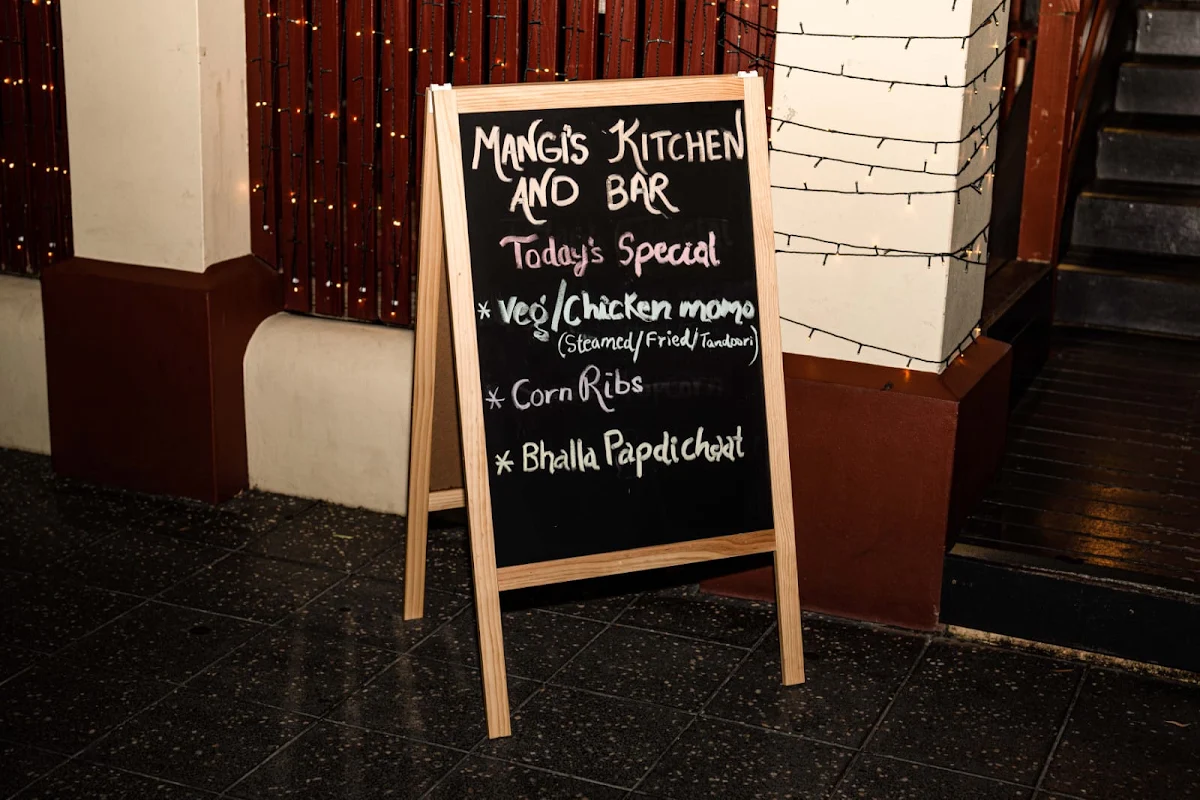 MANGI'S KITCHEN
AND BAR
Today's Special
* Veg/Chicken momo
(Steamed/Fried/Tandoori)
* Corn Ribs
* Bhalla Papdi chaat